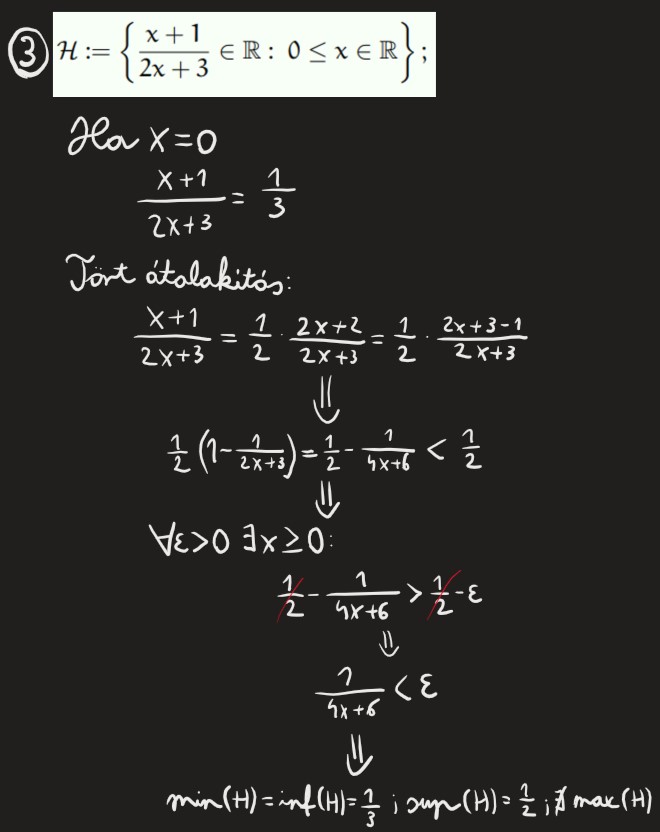 ③ H := { (x + 1)/(2x + 3) ∈ ℝ : 0 ≤ x ∈ ℝ } ;
Ha x=0
(x+1)/(2x+3) = 1/3
Tört átalakitás:
(x+1)/(2x+3) = 1/2 · (2x+2)/(2x+3) = 1/2 · (2x+3-1)/(2x+3)
⇓
1/2 (1 - 1/(2x+3)) = 1/2 - 1/(4x+6) < 1/2
⇓
∀ε>0 ∃x≥0:
1/2 - 1/(4x+6) > 1/2 - ε
⇓
1/(4x+6) < ε
⇓
min(H) = inf(H) = 1/3 ; sup(H) = 1/2 ; ∄ max(H)